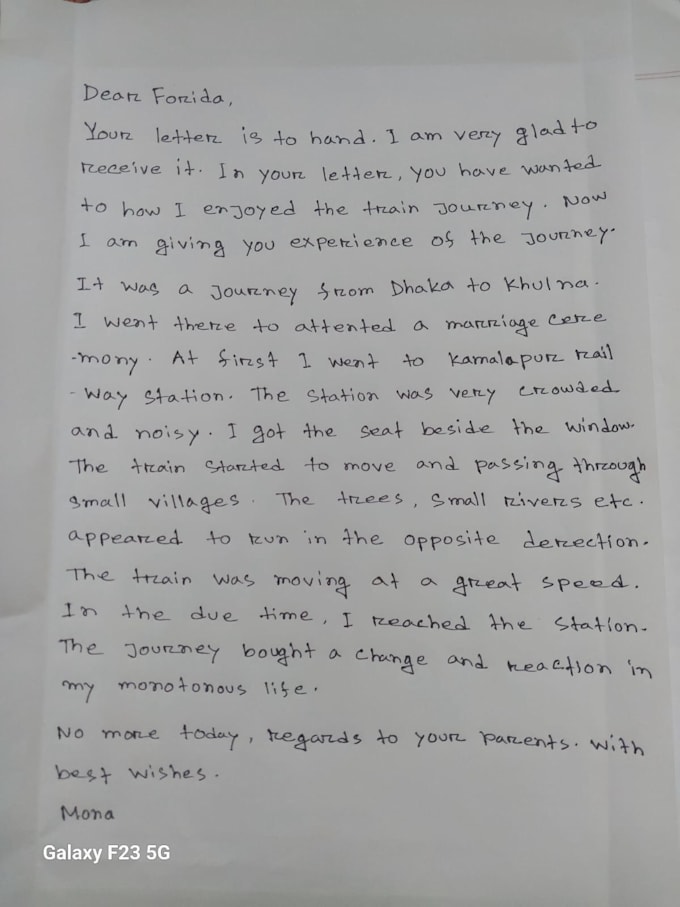 Dear Forida,
Your letter is to hand. I am very glad to
receive it. In your letter, you have wanted
to how I enjoyed the train Journey. Now
I am giving you experience of the Journey.
It was a Journey from Dhaka to Khulna.
I went there to attented a marriage Cere
-mony. At first I went to Kamalapur rail
-way station. The station was very crowded
and noisy. I got the seat beside the window.
The train started to move and passing through
small villages. The trees, small rivers etc.
appeared to run in the opposite derection.
The train was moving at a great speed.
In the due time, I reached the station.
The Journey bought a change and reaction in
my monotonous life.
No more today, regards to your parents. With
best wishes.
Mona
Galaxy F23 5G